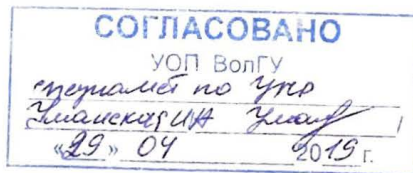 СОГЛАСОВАНО
УОП ВолГУ
специалист по УМР
Уманская ИА
«29» 04 2019 г.